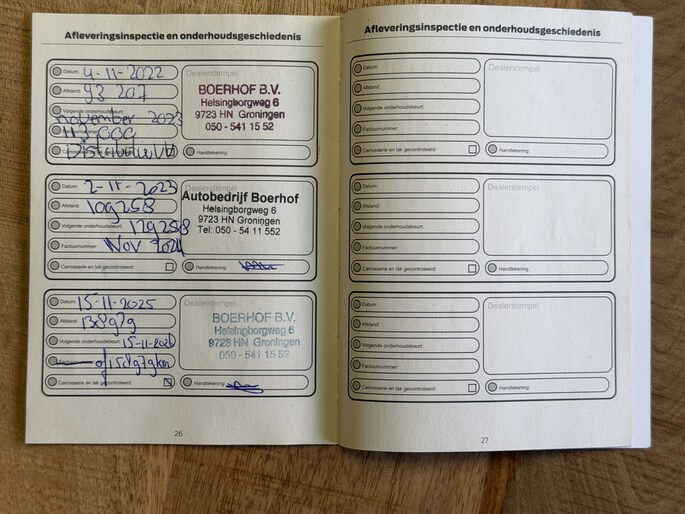 Afleveringsinspectie en onderhoudsgeschiedenis
Datum: 4-11-2022
Afstand: 93 207
Volgende onderhoudsbeurt:
november 2023
113.000
Dealerstempel
BOERHOF B.V.
Helsingborgweg 6
9723 HN Groningen
050 - 541 15 52
Handtekening:
Datum: 2-11-2023
Afstand: 109258
Volgende onderhoudsbeurt: 129258
Factuurnummer: Nov 2024
Carrosserie en lak gecontroleerd:
Autobedrijf Boerhof
Helsingborgweg 6
9723 HN Groningen
Tel: 050 - 54 11 552
Handtekening:
Datum: 15-11-2025
Afstand: 138979
Volgende onderhoudsbeurt: 15-11-2026
of 158979km
Carrosserie en lak gecontroleerd:
Dealerstempel
BOERHOF B.V.
Helsingborgweg 6
9723 HN Groningen
050 - 541 15 52
Handtekening:
26
Afleveringsinspectie en onderhoudsgeschiedenis
Datum:
Afstand:
Volgende onderhoudsbeurt:
Factuurnummer:
Carrosserie en lak gecontroleerd:
Dealerstempel
Handtekening:
Datum:
Afstand:
Volgende onderhoudsbeurt:
Factuurnummer:
Carrosserie en lak gecontroleerd:
Dealerstempel
Handtekening:
Datum:
Afstand:
Volgende onderhoudsbeurt:
Factuurnummer:
Carrosserie en lak gecontroleerd:
Dealerstempel
Handtekening:
27